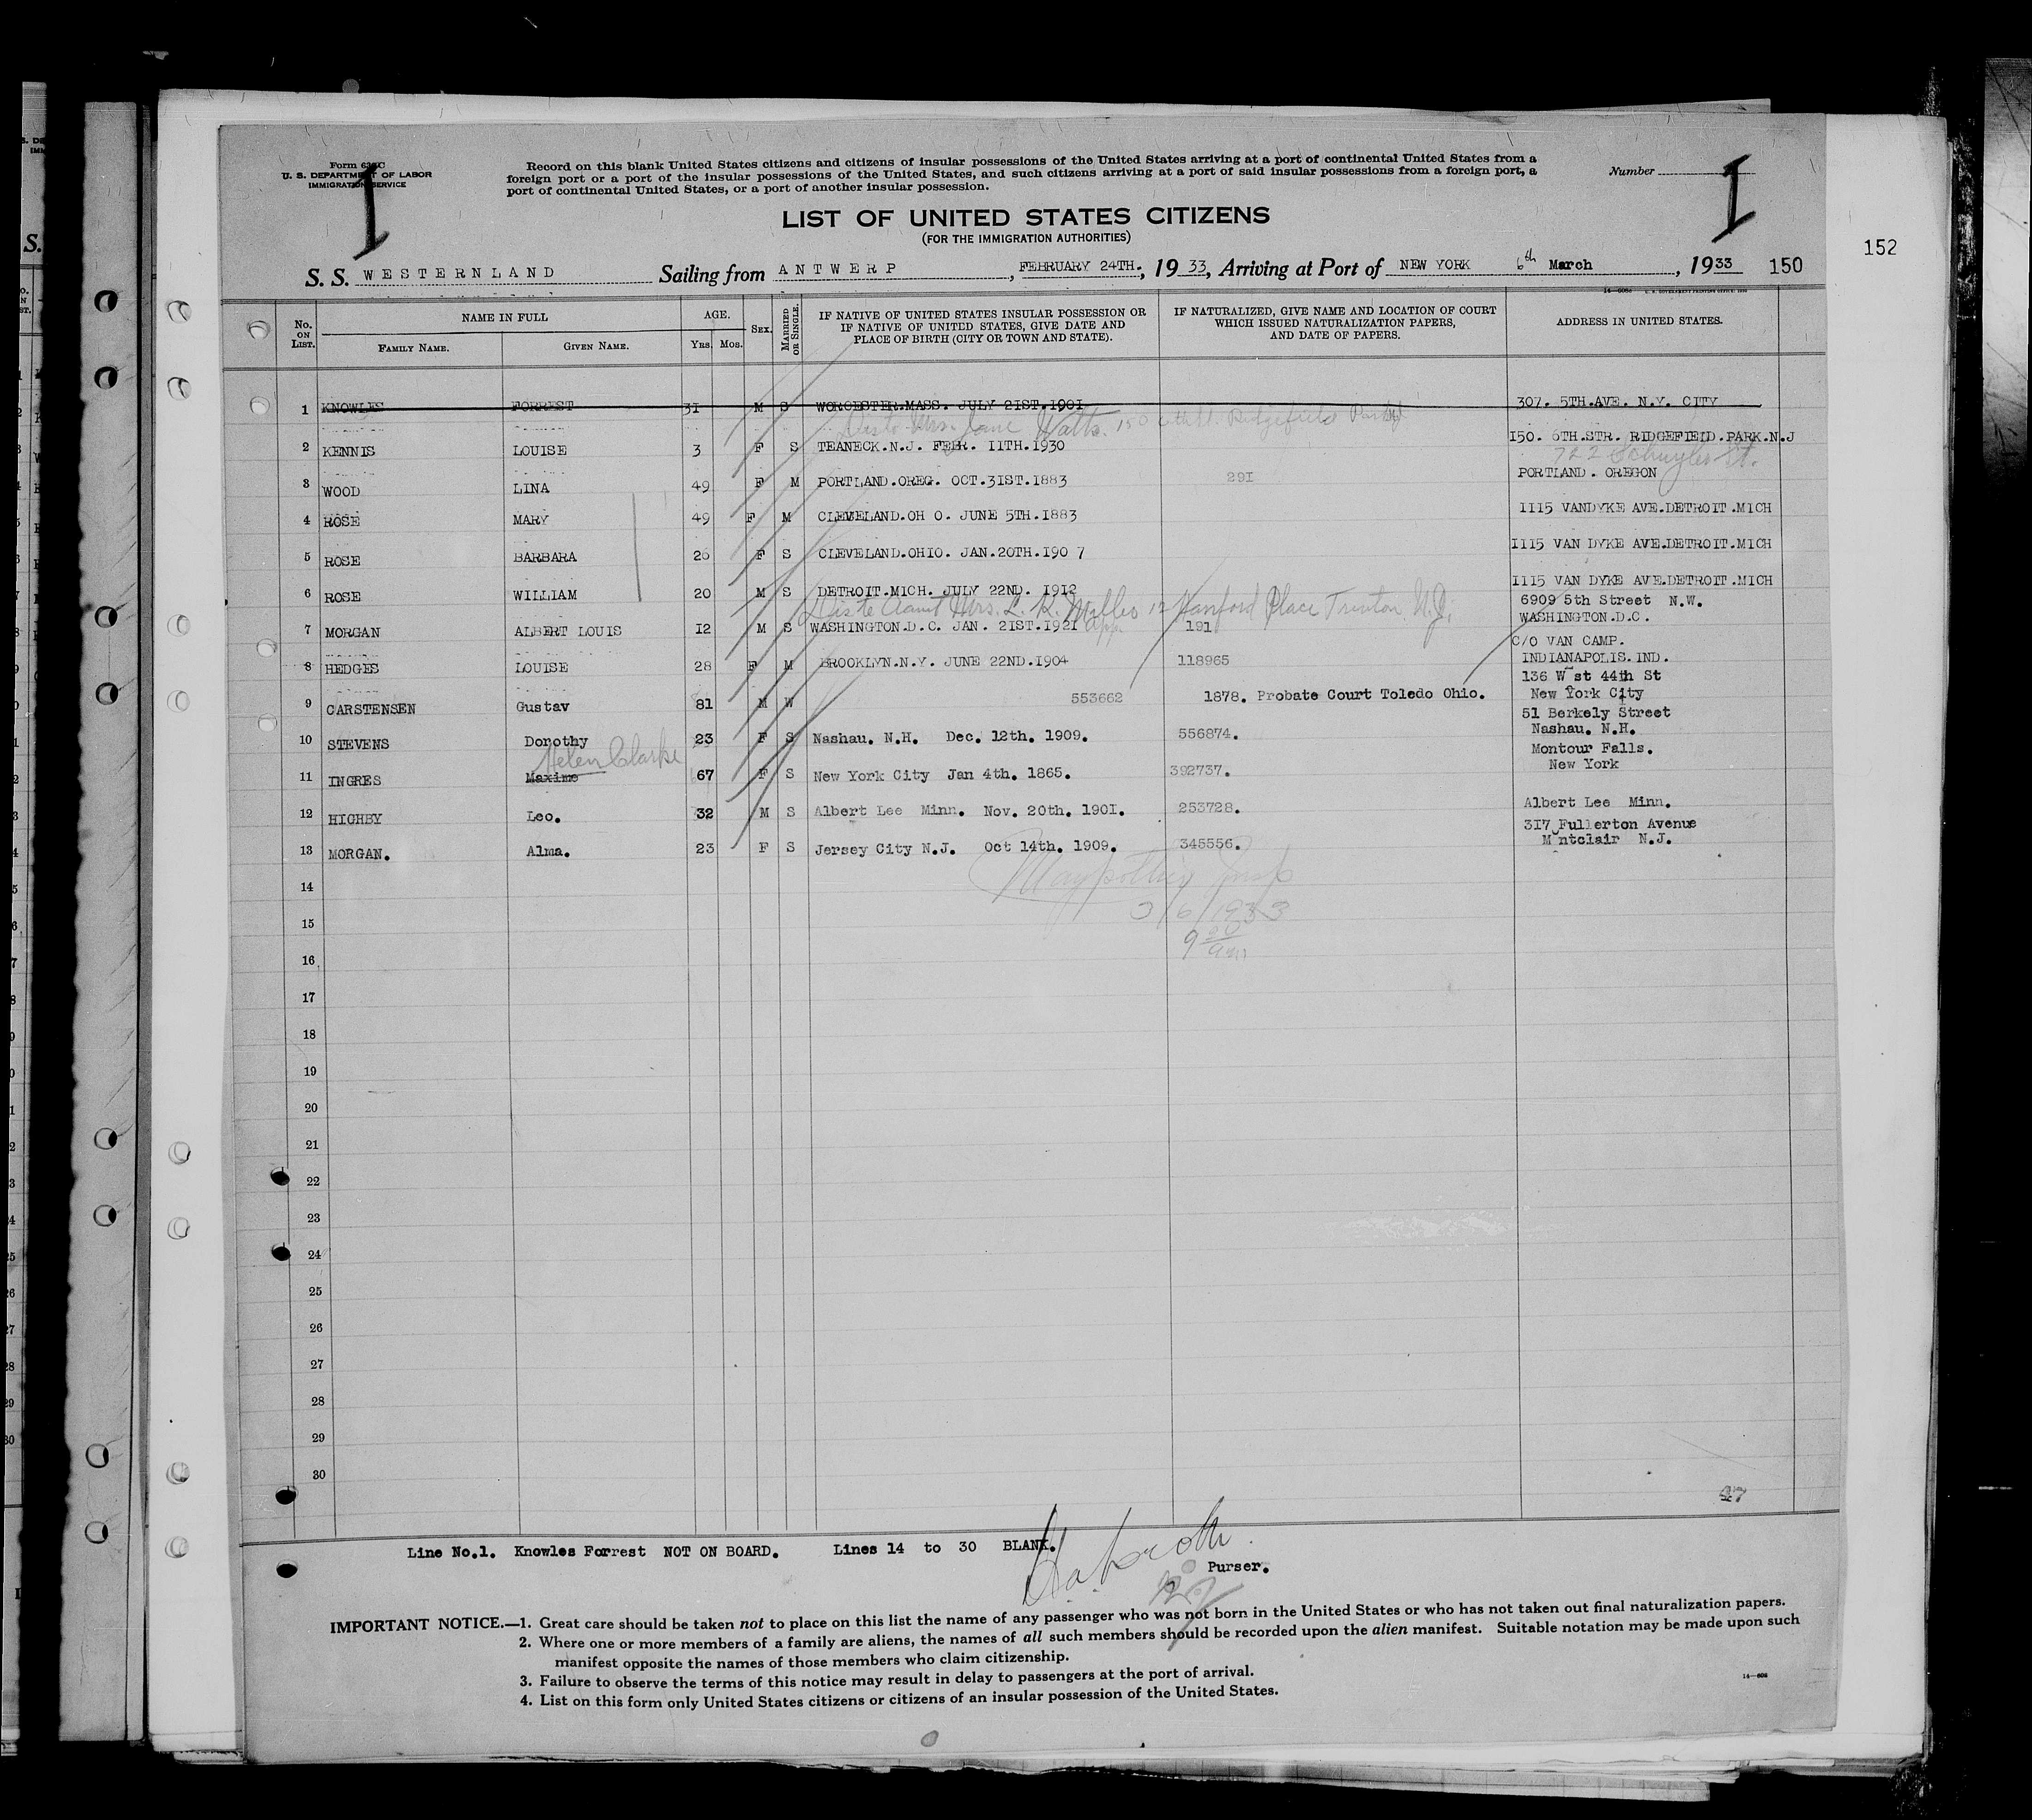 Form 630C
U. S. DEPARTMENT OF LABOR
IMMIGRATION SERVICE
Record on this blank United States citizens and citizens of insular possessions of the United States arriving at a port of continental United States from a
foreign port or a port of the insular possessions of the United States, and such citizens arriving at a port of said insular possessions from a foreign port, a
port of continental United States, or a port of another insular possession.
Number
1
1
LIST OF UNITED STATES CITIZENS
(FOR THE IMMIGRATION AUTHORITIES)
152
S. S. WESTERNLAND Sailing from ANTWERP, FEBRUARY 24TH., 1933, Arriving at Port of NEW YORK 6th March, 1933 150
No. ON LIST. NAME IN FULL FAMILY NAME. GIVEN NAME. AGE. YRS. MOS. SEX. MARRIED OR SINGLE. IF NATIVE OF UNITED STATES INSULAR POSSESSION OR IF NATIVE OF UNITED STATES, GIVE DATE AND PLACE OF BIRTH (CITY OR TOWN AND STATE). IF NATURALIZED, GIVE NAME AND LOCATION OF COURT WHICH ISSUED NATURALIZATION PAPERS, AND DATE OF PAPERS. ADDRESS IN UNITED STATES.
1 KNOWLES FORREST 31 M S WORCESTER.MASS. JULY 21ST.1901 307. 5TH.AVE. N.Y. CITY
Mrs. Jane Watts. 150 6th St. Ridgefield Park NJ
2 KENNIS LOUISE 3 F S TEANECK.N.J. FEBR. 11TH.1930 150. 6TH.STR. RIDGEFIEID.PARK.N.J
722 Schuyler St.
3 WOOD LINA 49 F M PORTLAND.OREG. OCT.31ST.1883 291 PORTLAND. OREGON
4 ROSE MARY 49 F M CLEVELAND.OH O. JUNE 5TH.1883 1115 VANDYKE AVE.DETROIT.MICH
5 ROSE BARBARA 26 F S CLEVELAND.OHIO. JAN.20TH.190 7 1115 VAN DYKE AVE.DETROIT.MICH
6 ROSE WILLIAM 20 M S DETROIT.MICH. JULY 22ND. 1912 1115 VAN DYKE AVE.DETROIT.MICH
Aunt Mrs. L. K. 12 Hanford Place Trenton N.J.
6909 5th Street N.W.
7 MORGAN ALBERT LOUIS 12 M S WASHINGTON.D.C. JAN. 21ST.1921 app. 191 WASHINGTON.D.C.
C/O VAN CAMP.
8 HEDGES LOUISE 28 F M BROOKLYN.N.Y. JUNE 22ND.1904 118965 INDIANAPOLIS.IND.
136 W st 44th St
9 CARSTENSEN Gustav 81 M W 553662 1878. Probate Court Toledo Ohio. New York City
51 Berkely Street
10 STEVENS Dorothy 23 F S Nashau. N.H. Dec. 12th. 1909. 556874. Nashau. N.H.
Helen Clarke
Montour Falls.
11 INGRES Maxime 67 F S New York City Jan 4th. 1865. 392737. New York
12 HIGHBY Leo. 32 M S Albert Lee Minn. Nov. 20th. 1901. 253728. Albert Lee Minn.
317 Fullerton Avenue
13 MORGAN. Alma. 23 F S Jersey City N.J. Oct 14th. 1909. 345556. M ntclair N.J.
14
3/6/1933
15
9 30 am
16
17
18
19
20
21
22
23
24
25
26
27
28
29
30
47
Line No.1. Knowles Forrest NOT ON BOARD. Lines 14 to 30 BLANK.
Purser.
IMPORTANT NOTICE.—1. Great care should be taken not to place on this list the name of any passenger who was not born in the United States or who has not taken out final naturalization papers.
2. Where one or more members of a family are aliens, the names of all such members should be recorded upon the alien manifest. Suitable notation may be made upon such
manifest opposite the names of those members who claim citizenship.
3. Failure to observe the terms of this notice may result in delay to passengers at the port of arrival.
4. List on this form only United States citizens or citizens of an insular possession of the United States.
14—608